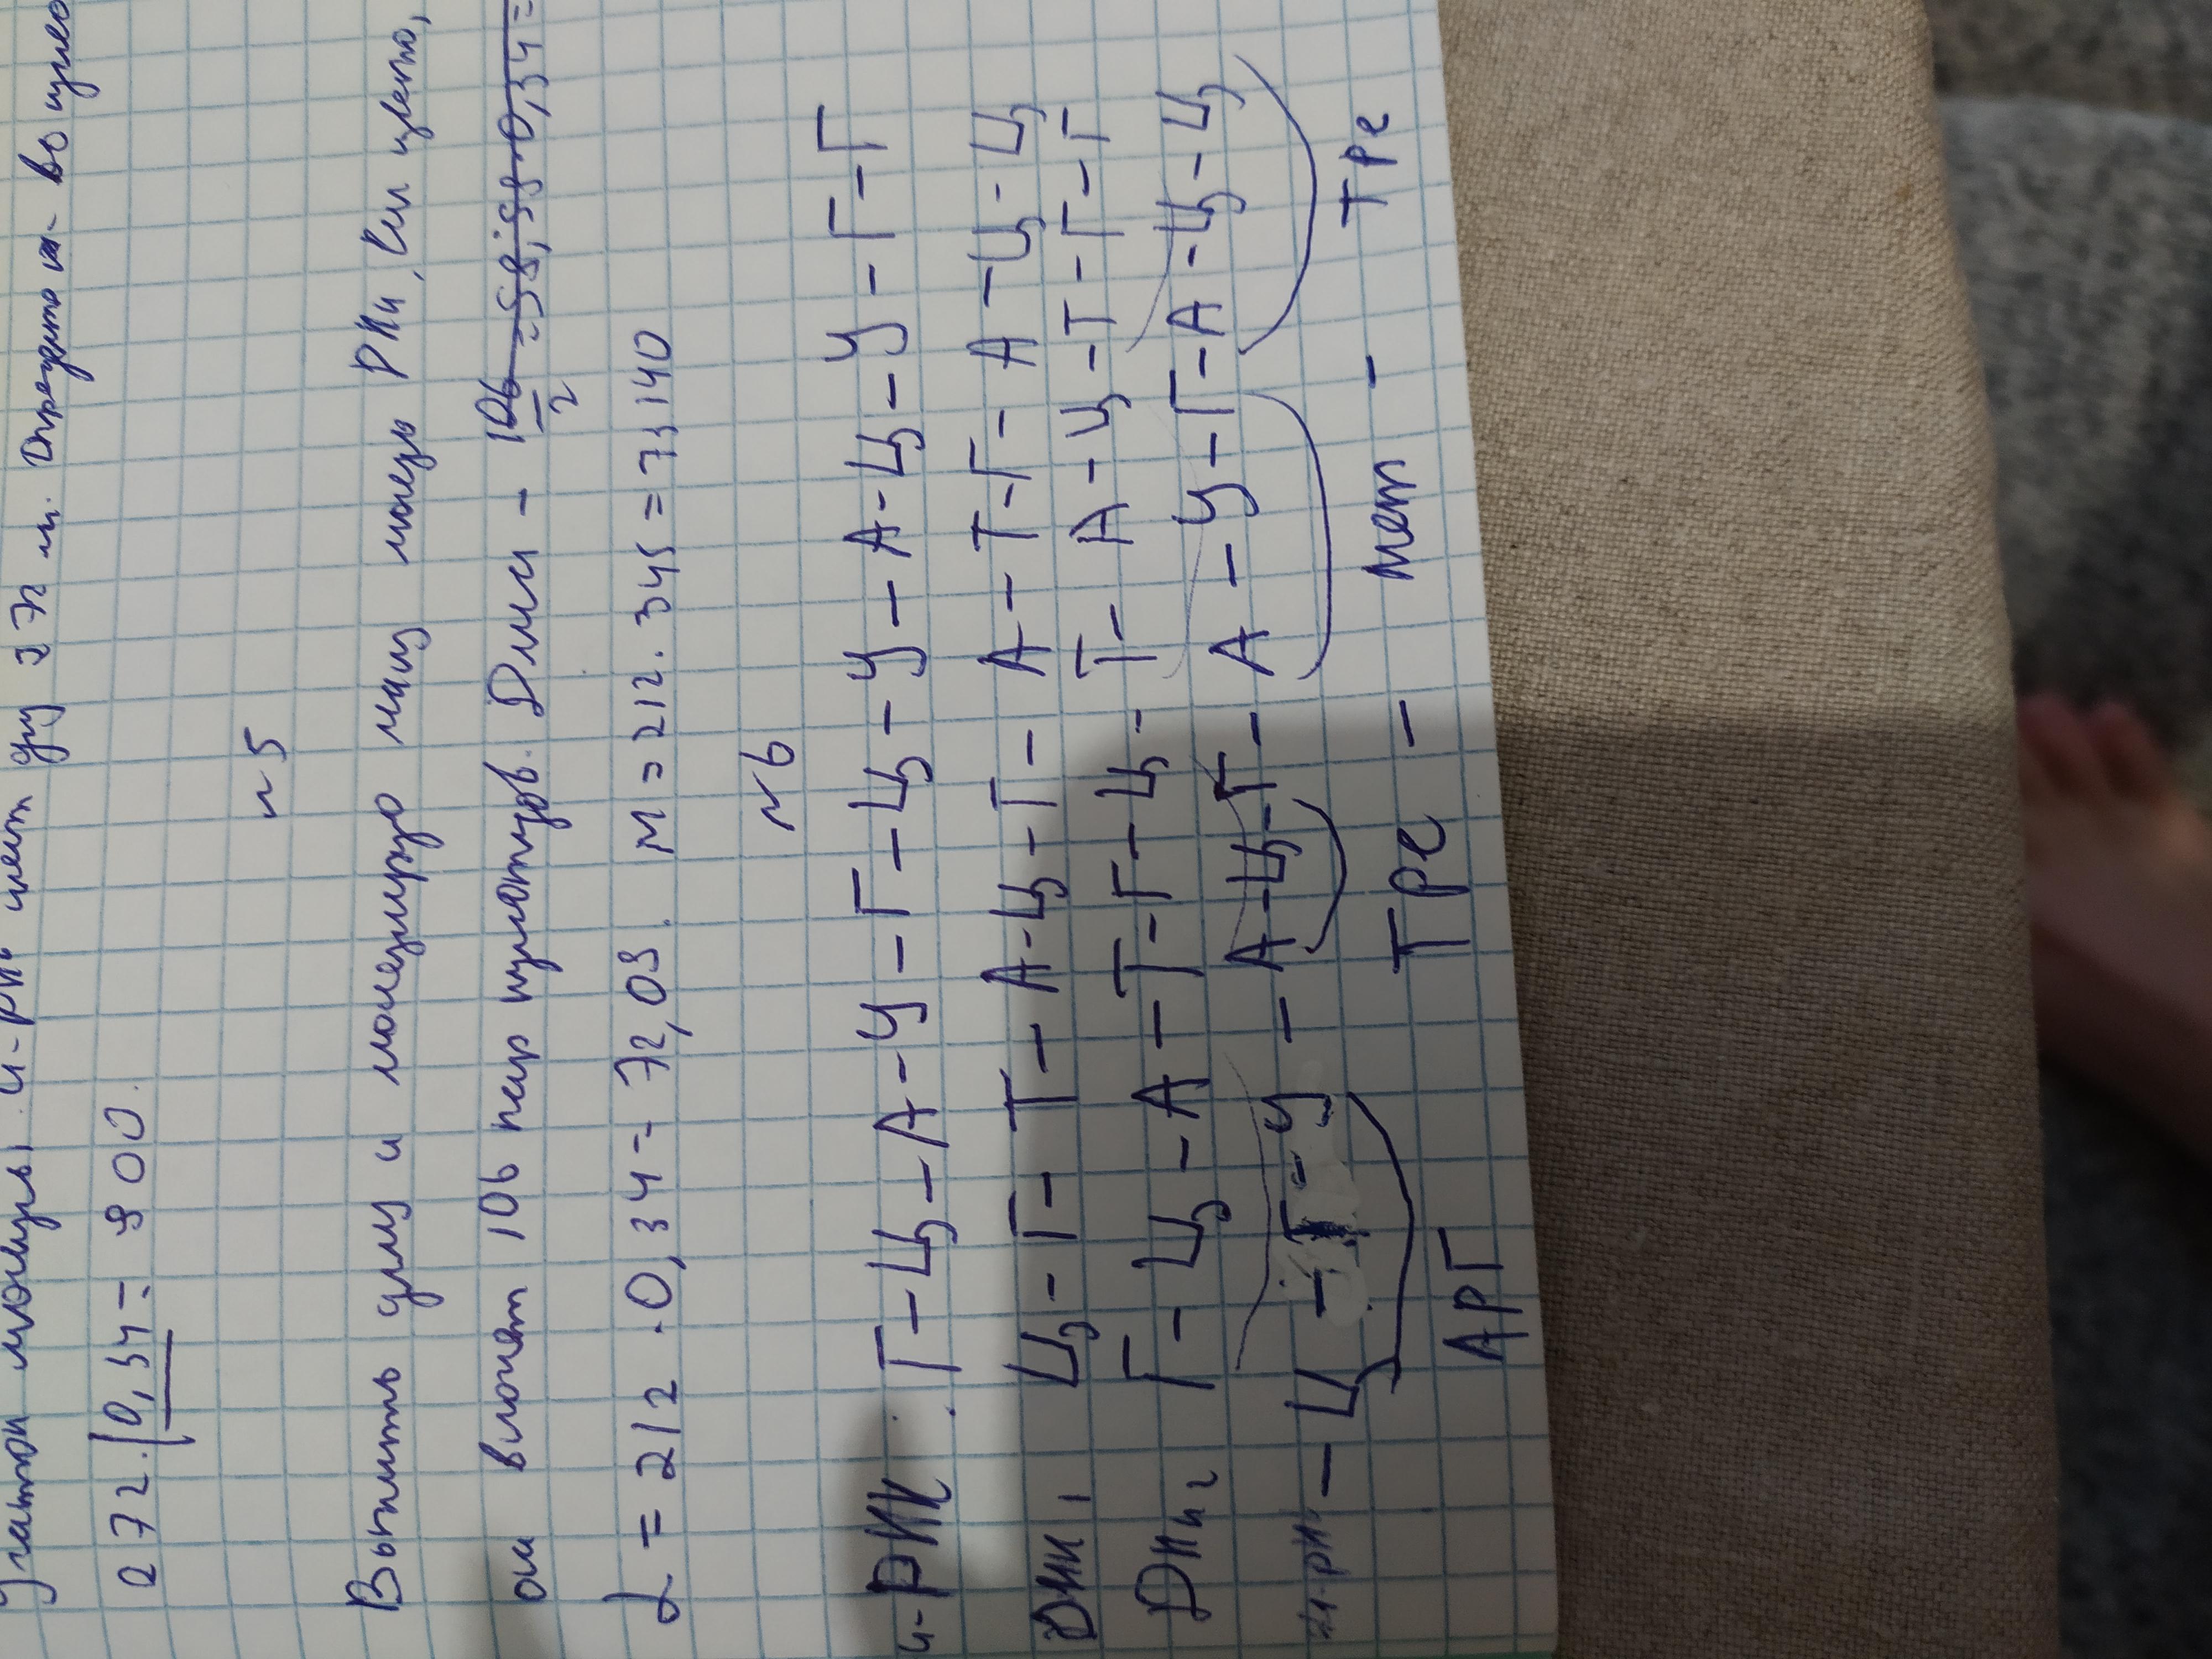 Участок молекулы и-РНК имеет дну 272 м. Определить во
272 : 0,34 = 800.
№5
Вычислить длину и молекулярю массу молекулы РНК, если цепь,
включает 106 пар нуклеотидов. Длина - 106/2 = 53, 53·0,34=
L = 212 · 0,34 = 72,08. M = 212 · 345 = 73140
№6
и-РНК Г-Ц-А-У-Г-Ц-У-А-Ц-У-Г-Г
ДНК1 Ц-Г-Т-А-Ц-Г-А-Т-Г-А-Ц-Ц
ДНК2 Г-Ц-А-Т-Г-Ц-Т-А-Ц-Т-Г-Г
т-РНК -Ц-Г-У-А-Ц-Г-А-У-Г-А-Ц-Ц
Арг Тре - мет - Тре